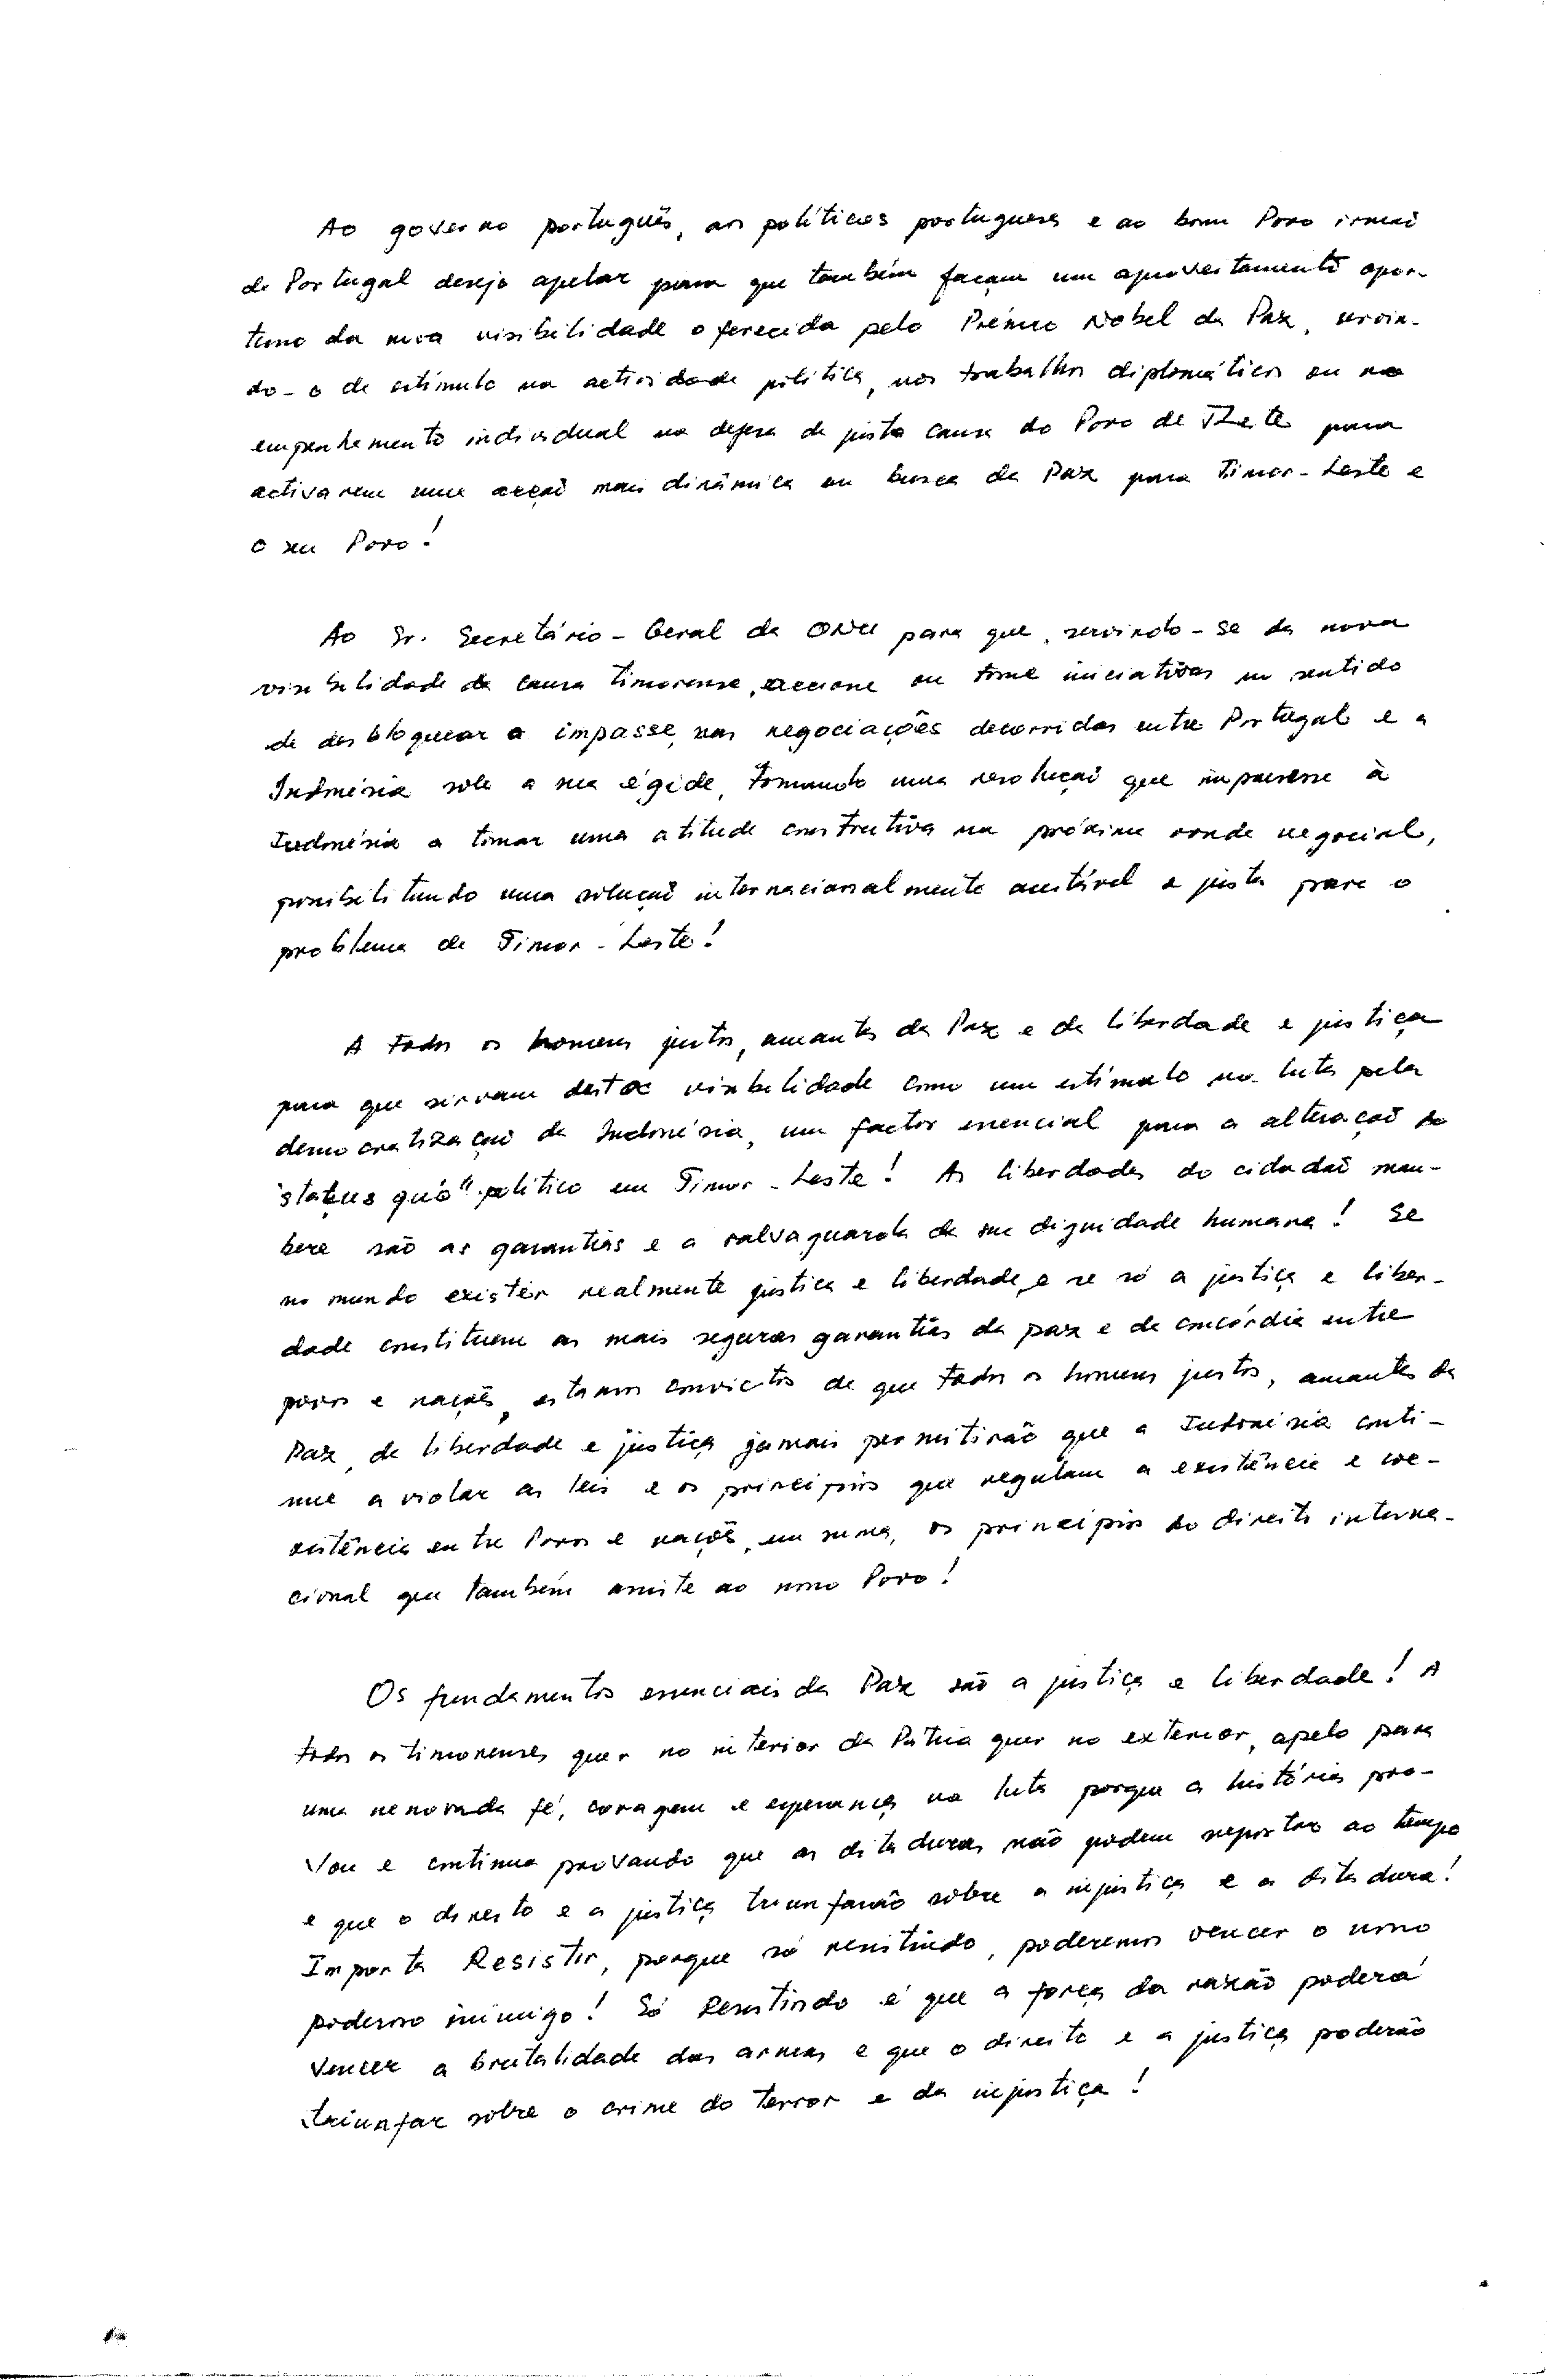 Ao governo português, aos políticos portugueses e ao bom Povo irmão
de Portugal desejo apelar para que também façam um aproveitamento opor-
tuno da nova visibilidade oferecida pelo Prémio Nobel da Paz, servin-
do-o de estímulo na actividade política, nos trabalhos diplomáticos ou no
empenhamento individual na defesa da justa causa do Povo de para
activarem uma acção mais dinâmica em busca da Paz para Timor-Leste e
o seu Povo!
Ao Sr. Secretário-Geral da ONU para que, servindo-se da nova
visibilidade da causa timorense, accione ou tome iniciativas no sentido
de desbloquear o impasse nas negociações decorridas entre Portugal e a
Indonésia sob a sua égide, tomando uma resolução que à
Indonésia a tomar uma atitude construtiva na próxima ronda negocial,
possibilitando uma solução internacionalmente aceitável e justa para o
problema de Timor-Leste!
A todos os homens justos, amantes da Paz e da liberdade e justiça
para que sirvam desta visibilidade como um estímulo na luta pela
democratização da Indonésia, um factor essencial para a alteração do
"status quó" político em Timor-Leste! As liberdades do cidadão mau-
bere são as garantias e a salvaguarda da sua dignidade humana! Se
no mundo existir realmente justiça e liberdade, e se só a justiça e liber-
dade constituem as mais seguras garantias da paz e da concórdia entre
povos e nações, estamos convictos de que todos os homens justos, amantes da
Paz, da liberdade e justiça jamais permitirão que a Indonésia conti-
nue a violar as leis e os princípios que regulam a existência e coe-
xistência entre Povos e nações, em suma, os princípios do direito interna-
cional que também assiste ao nosso Povo!
Os fundamentos essenciais da Paz são a justiça e liberdade! A
todos os timorenses quer no interior da Pátria quer no exterior, apelo para
uma renovada fé, coragem e esperança na luta porque a história pro-
vou e continua provando que as ditaduras não podem ao tempo
e que o direito e a justiça triunfarão sobre a injustiça e a ditadura!
Importa Resistir, porque só resistindo, poderemos vencer o nosso
poderoso inimigo! Só Resistindo é que a força da razão poderá
vencer a brutalidade das armas e que o direito e a justiça poderão
triunfar sobre o crime do terror e da injustiça!